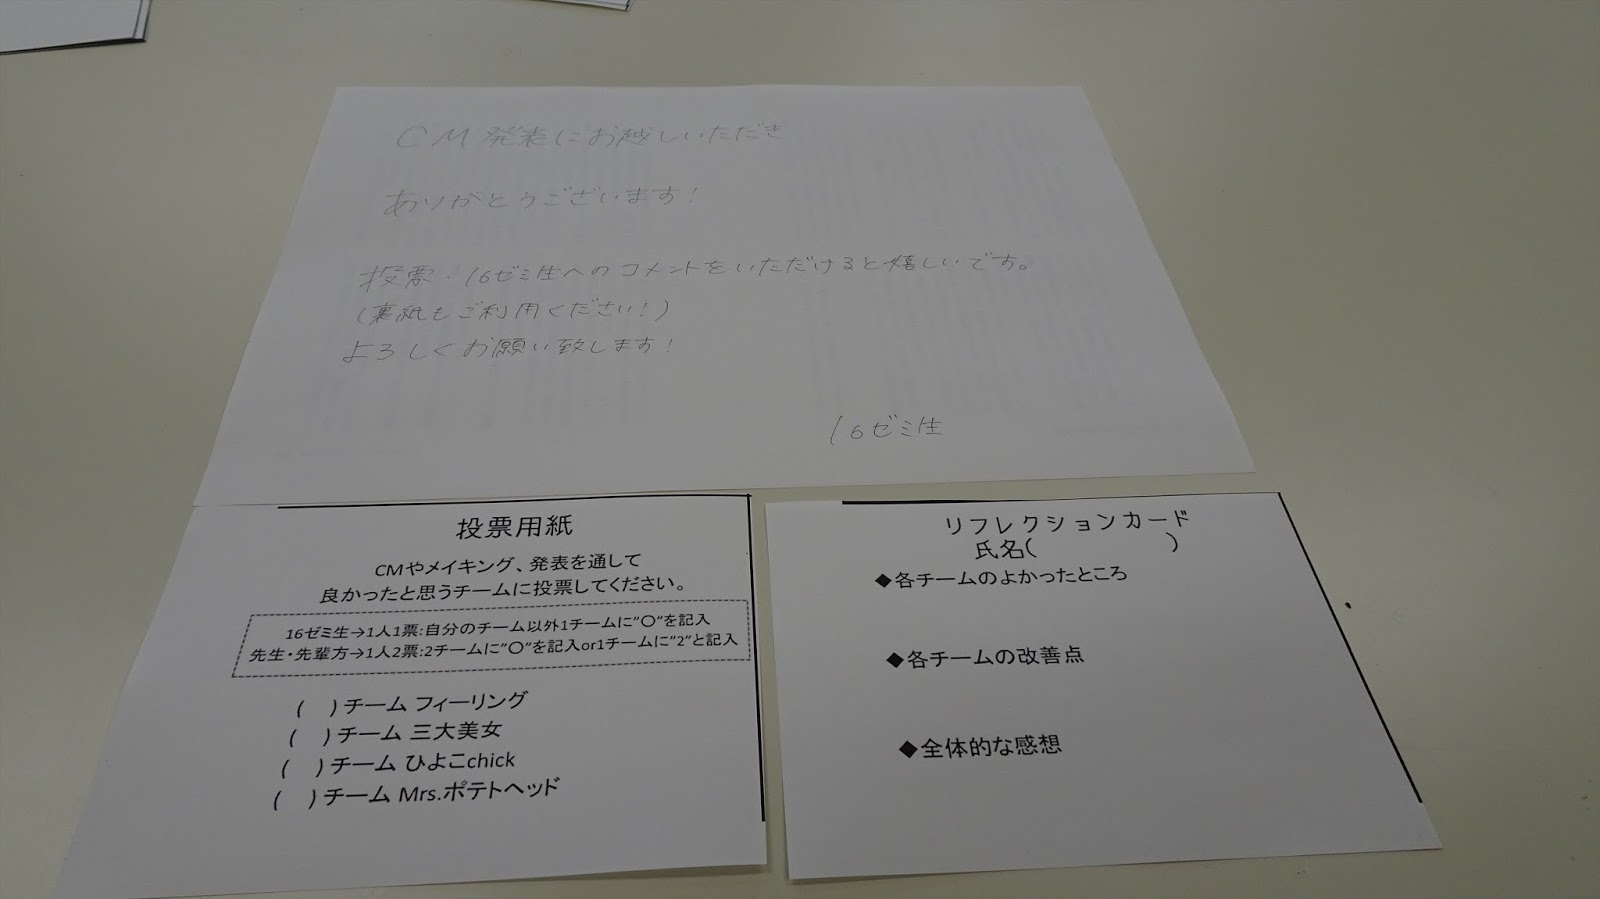 CM発表にお越しいただき
ありがとうございます!
投票・16ゼミ生へのコメントをいただけると嬉しいです。
(裏紙もご利用ください!)
よろしくお願い致します!
16ゼミ生
投票用紙
CMやメイキング、発表を通して
良かったと思うチームに投票してください。
16ゼミ生→1人1票:自分のチーム以外1チームに"〇"を記入
先生・先輩方→1人2票:2チームに"〇"を記入or1チームに"2"と記入
( )チーム フィーリング
( )チーム 三大美女
( )チーム ひよこchick
( )チーム Mrs.ポテトヘッド
リフレクションカード
氏名( )
◆各チームのよかったところ
◆各チームの改善点
◆全体的な感想